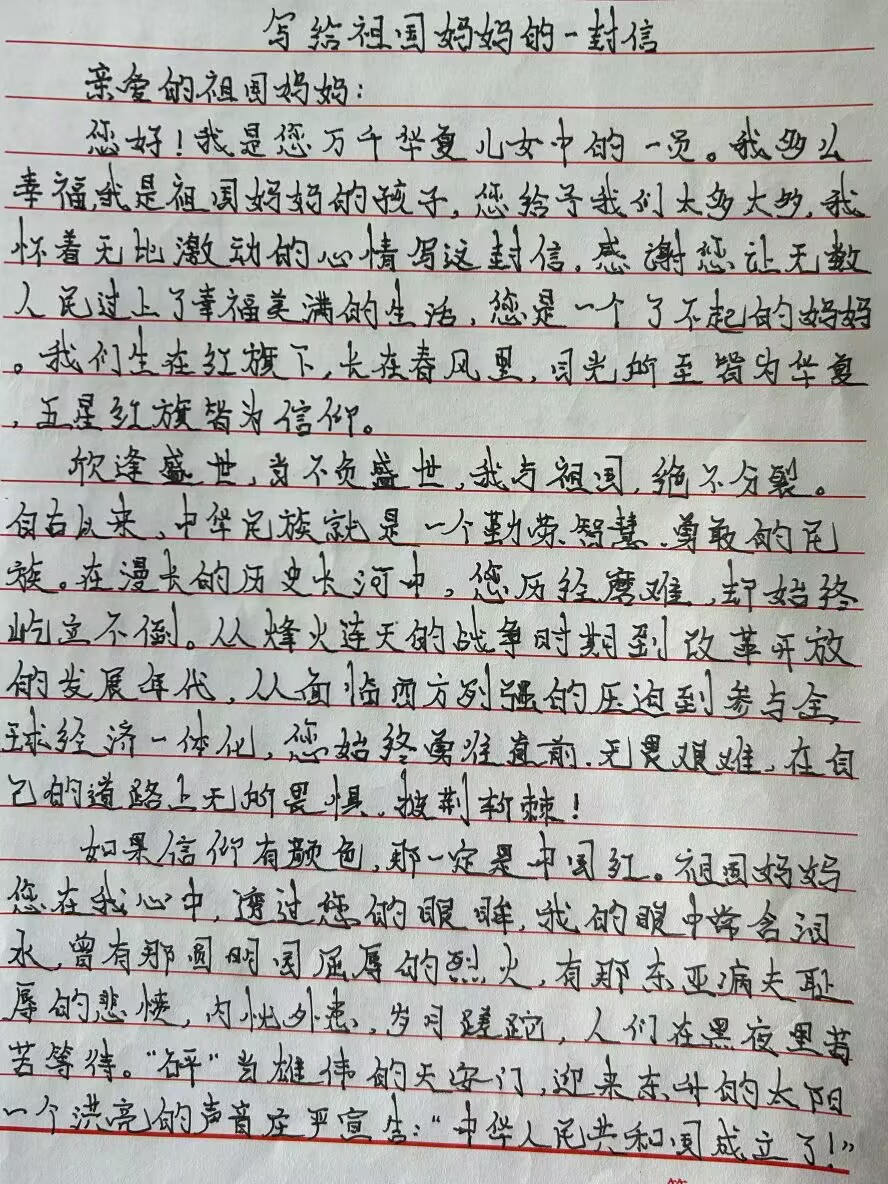 写给祖国妈妈的一封信
亲爱的祖国妈妈：
您好！我是您万千华夏儿女中的一员。我多么
幸福，我是祖国妈妈的孩子，您给予我们太多太多，我
怀着无比激动的心情写这封信，感谢您让无数
人民过上了幸福美满的生活，您是一个了不起的妈妈
。我们生在红旗下，长在春风里，目光所至皆为华夏
，五星红旗皆为信仰。
欣逢盛世，当不负盛世，我与祖国，绝不分裂。
自古以来，中华民族就是一个勤劳、智慧、勇敢的民
族。在漫长的历史长河中，您历经磨难，却始终
屹立不倒。从烽火连天的战争时期到改革开放
的发展年代，从面临西方列强的压迫到参与全
球经济一体化，您始终勇往直前，无畏艰难，在自
己的道路上无所畏惧，披荆斩棘！
如果信仰有颜色，那一定是中国红。祖国妈妈
您在我心中，透过您的眼眸，我的眼中常含泪
水，曾有那圆明园屈辱的烈火，有那东亚病夫耻
辱的悲愤，内忧外患，岁月蹉跎，人们在黑夜里苦
苦等待。“砰”当雄伟的天安门，迎来东升的太阳
一个洪亮的声音庄严宣告：“中华人民共和国成立了！”